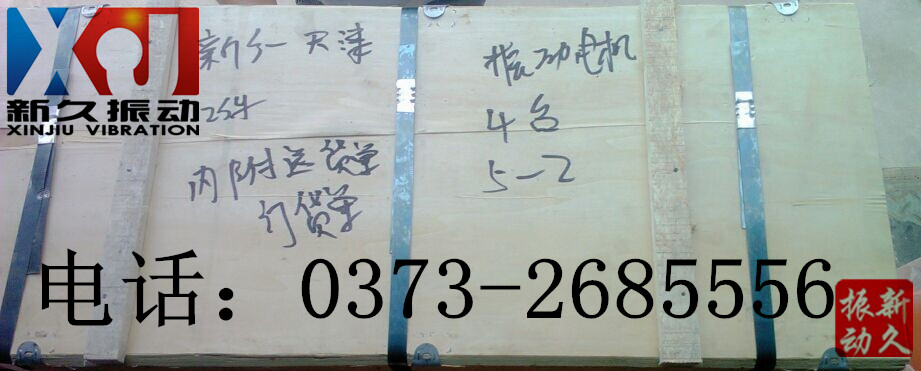 XJ
新久振动
XINJIU VIBRATION
新乡一天津
25件
内附送货单
订货单
振动电机
4台
5-2
电话：0373-2685556
新久
振动